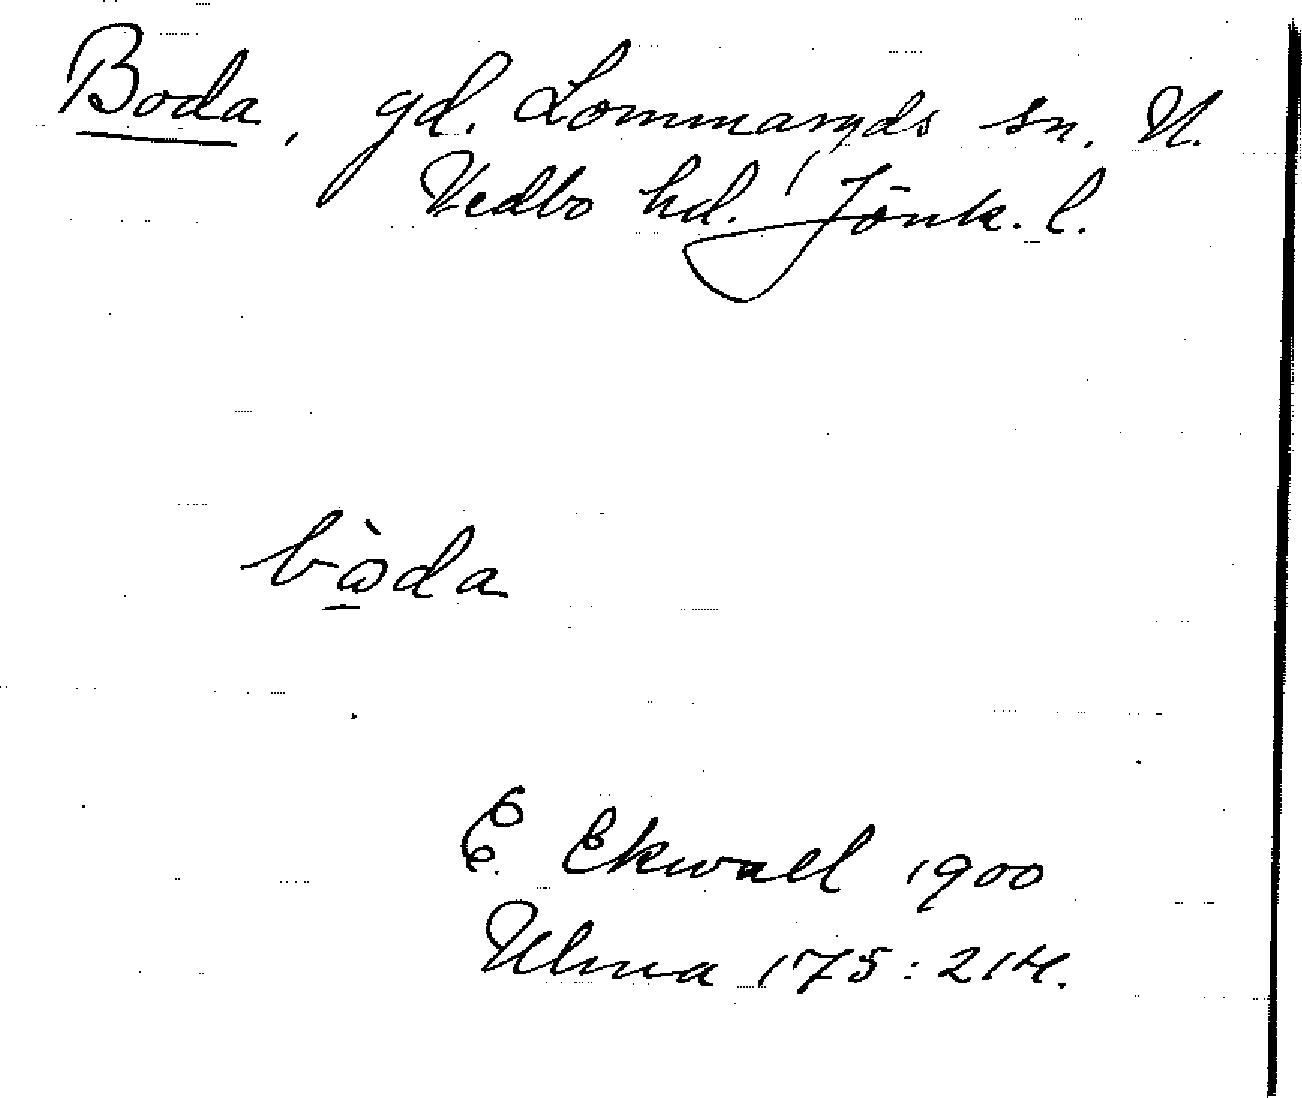 Boda, gd. Lommaryds sn. N.
Vedbo hd. Jönk. l.
bὼ̱da
E. Ekwall 1900
Ulma 175:214.